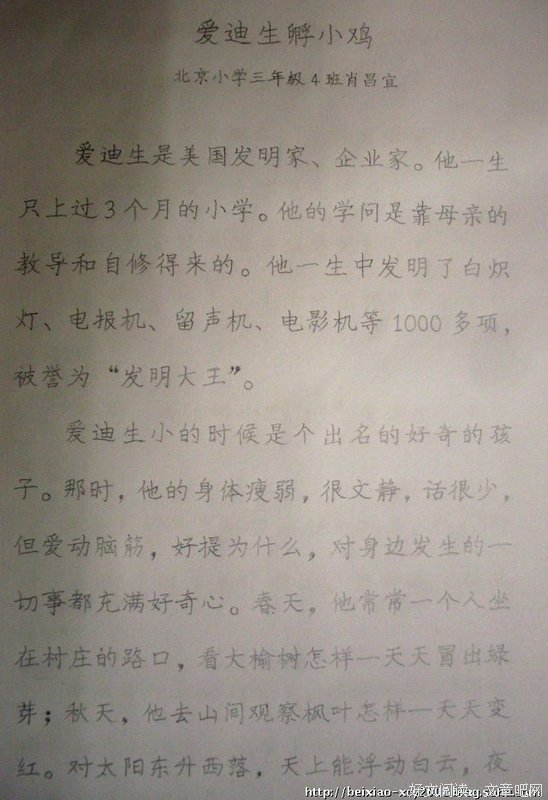 爱迪生孵小鸡
北京小学三年级4班肖昌宜
爱迪生是美国发明家、企业家。他一生
只上过3个月的小学。他的学问是靠母亲的
教导和自修得来的。他一生中发明了白炽
灯、电报机、留声机、电影机等1000多项,
被誉为“发明大王”。
爱迪生小的时候是个出名的好奇的孩
子。那时,他的身体瘦弱,很文静,话很少,
但爱动脑筋,好提为什么,对身边发生的一
切事都充满好奇心。春天,他常常一个人坐
在村庄的路口,看大榆树怎样一天天冒出绿
芽;秋天,他去山间观察枫叶怎样一天天变
红。对太阳东升西落,天上能浮动白云,夜
好文阅读—文章吧网